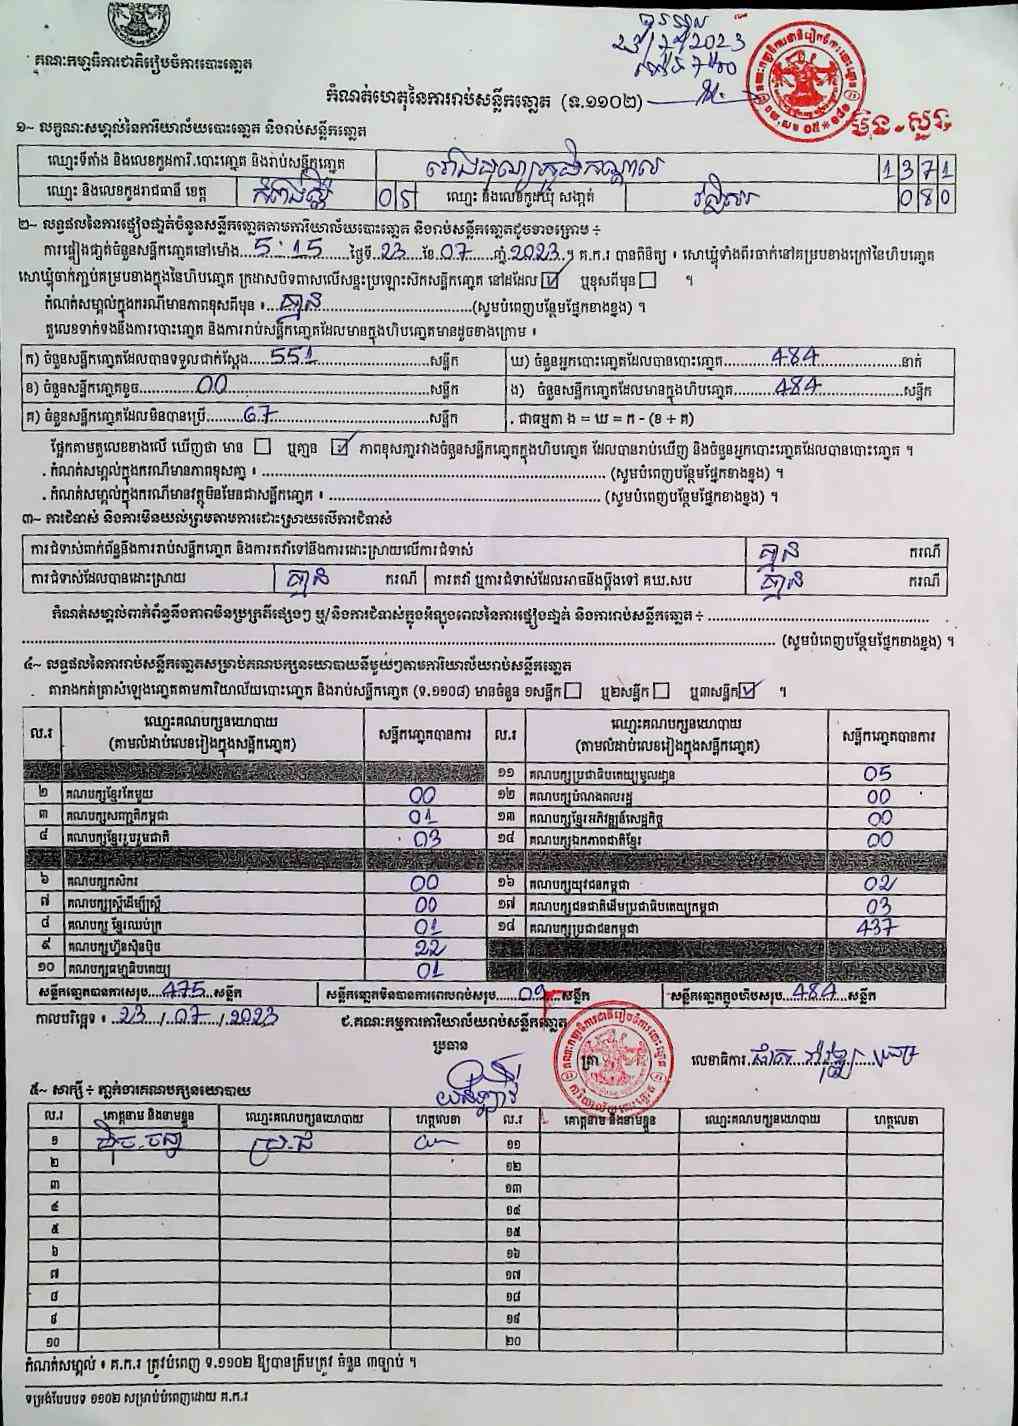 គណៈកម្មាធិការជាតិរៀបចំការបោះឆ្នោត
23/7/2023
កំណត់ហេតុនៃការរាប់សន្លឹកឆ្នោត (ទ.១១០២)
១~ លក្ខណៈសម្គាល់នៃការិយាល័យបោះឆ្នោត និងរាប់សន្លឹកឆ្នោត
ឈ្មោះទីតាំង និងលេខកូដការិ.បោះឆ្នោត និងរាប់សន្លឹកឆ្នោត 1371
ឈ្មោះ និងលេខកូដរាជធានី ខេត្ត កំពង់ស្ពឺ 05 ឈ្មោះ និងលេខកូដឃុំ សង្កាត់ 080
២~ លទ្ធផលនៃការផ្ទៀងផ្ទាត់ចំនួនសន្លឹកឆ្នោតតាមការិយាល័យបោះឆ្នោត និងរាប់សន្លឹកឆ្នោតដូចខាងក្រោម ÷
ការផ្ទៀងផ្ទាត់ចំនួនសន្លឹកឆ្នោតនៅម៉ោង 5:15 ថ្ងៃទី 23 ខែ 07 ឆ្នាំ 2023 ។ គ.ក.រ បានពិនិត្យ ៖ សោឃ្លុំទាំងពីរចាក់នៅគម្របខាងក្រៅនៃហិបឆ្នោត
សោឃ្លុំចាក់ភ្ជាប់គម្របខាងក្នុងនៃហិបឆ្នោត ក្រដាសបិទពាសលើសន្ទះប្រឡោះសិកសន្លឹកឆ្នោត នៅដដែល ☑ ឬខុសពីមុន ☐ ។
កំណត់សម្គាល់ក្នុងករណីមានភាពខុសពីមុន ៖ គ្មាន (សូមបំពេញបន្ថែមផ្នែកខាងខ្នង) ។
តួលេខទាក់ទងនឹងការបោះឆ្នោត និងការរាប់សន្លឹកឆ្នោតដែលមានក្នុងហិបឆ្នោតមានដូចខាងក្រោម ៖
ក) ចំនួនសន្លឹកឆ្នោតដែលបានទទួលជាក់ស្តែង 551 សន្លឹក ឃ) ចំនួនអ្នកបោះឆ្នោតដែលបានបោះឆ្នោត 484 នាក់
ខ) ចំនួនសន្លឹកឆ្នោតខូច 00 សន្លឹក ង) ចំនួនសន្លឹកឆ្នោតដែលមានក្នុងហិបឆ្នោត 484 សន្លឹក
គ) ចំនួនសន្លឹកឆ្នោតដែលមិនបានប្រើ 67 សន្លឹក . ជាធម្មតា ង = ឃ = ក - (ខ + គ)
ផ្អែកតាមតួលេខខាងលើ ឃើញថា មាន ☐ ឬគ្មាន ☑ ភាពខុសគ្នារវាងចំនួនសន្លឹកឆ្នោតក្នុងហិបឆ្នោត ដែលបានរាប់ឃើញ និងចំនួនអ្នកបោះឆ្នោតដែលបានបោះឆ្នោត ។
. កំណត់សម្គាល់ក្នុងករណីមានភាពខុសគ្នា ៖ (សូមបំពេញបន្ថែមផ្នែកខាងខ្នង) ។
. កំណត់សម្គាល់ក្នុងករណីមានវត្ថុមិនមែនជាសន្លឹកឆ្នោត ៖ (សូមបំពេញបន្ថែមផ្នែកខាងខ្នង) ។
៣~ ការជំទាស់ និងការមិនយល់ព្រមតាមការដោះស្រាយលើការជំទាស់
ការជំទាស់ពាក់ព័ន្ធនឹងការរាប់សន្លឹកឆ្នោត និងការតវ៉ាទៅនឹងការដោះស្រាយលើការជំទាស់ គ្មាន ករណី
ការជំទាស់ដែលបានដោះស្រាយ គ្មាន ករណី ការតវ៉ា ឬការជំទាស់ដែលអាចនឹងប្តឹងទៅ គឃ.សប គ្មាន ករណី
កំណត់សម្គាល់ពាក់ព័ន្ធនឹងភាពមិនប្រក្រតីផ្សេងៗ ឬ/និងការជំទាស់ក្នុងអំឡុងពេលនៃការផ្ទៀងផ្ទាត់ និងការរាប់សន្លឹកឆ្នោត ÷
(សូមបំពេញបន្ថែមផ្នែកខាងខ្នង) ។
៤~ លទ្ធផលនៃការរាប់សន្លឹកឆ្នោតសម្រាប់គណបក្សនយោបាយនីមួយៗតាមការិយាល័យរាប់សន្លឹកឆ្នោត
តារាងកត់ត្រាសំឡេងឆ្នោតតាមការិយាល័យបោះឆ្នោត និងរាប់សន្លឹកឆ្នោត (ទ.១១០៨) មានចំនួន ១សន្លឹក ☐ ឬ២សន្លឹក ☐ ឬ៣សន្លឹក ☑ ។
ល.រ ឈ្មោះគណបក្សនយោបាយ (តាមលំដាប់លេខរៀងក្នុងសន្លឹកឆ្នោត) សន្លឹកឆ្នោតបានការ ល.រ ឈ្មោះគណបក្សនយោបាយ (តាមលំដាប់លេខរៀងក្នុងសន្លឹកឆ្នោត) សន្លឹកឆ្នោតបានការ
១១ គណបក្សប្រជាធិបតេយ្យមូលដ្ឋាន 05
២ គណបក្សខ្មែរតែមួយ 00 ១២ គណបក្សបំណងពលរដ្ឋ 00
៣ គណបក្សសញ្ជាតិកម្ពុជា 01 ១៣ គណបក្សខ្មែរអភិវឌ្ឍន៍សេដ្ឋកិច្ច 00
៤ គណបក្សខ្មែររួបរួមជាតិ 03 ១៤ គណបក្សឯកភាពជាតិខ្មែរ 00
៦ គណបក្សកសិករ 00 ១៦ គណបក្សយុវជនកម្ពុជា 02
៧ គណបក្សស្ត្រីដើម្បីស្ត្រី 00 ១៧ គណបក្សជនជាតិដើមប្រជាធិបតេយ្យកម្ពុជា 03
៨ គណបក្ស ខ្មែរឈប់ក្រ 01 ១៨ គណបក្សប្រជាជនកម្ពុជា 437
៩ គណបក្សហ៊្វុនស៊ិនប៉ិច 22
១០ គណបក្សធម្មាធិបតេយ្យ 01
សន្លឹកឆ្នោតបានការសរុប 475 សន្លឹក សន្លឹកឆ្នោតមិនបានការពេលរាប់សរុប 09 សន្លឹក សន្លឹកឆ្នោតក្នុងហិបសរុប 484 សន្លឹក
កាលបរិច្ឆេទ ៖ 23/07/2023 ជ.គណៈកម្មការការិយាល័យរាប់សន្លឹកឆ្នោត
ប្រធាន ត្រា លេខាធិការ
៥~ សាក្សី ÷ ភ្នាក់ងារគណបក្សនយោបាយ
ល.រ គោត្តនាម និងនាមខ្លួន ឈ្មោះគណបក្សនយោបាយ ហត្ថលេខា ល.រ គោត្តនាម និងនាមខ្លួន ឈ្មោះគណបក្សនយោបាយ ហត្ថលេខា
១ ១១
២ ១២
៣ ១៣
៤ ១៤
៥ ១៥
៦ ១៦
៧ ១៧
៨ ១៨
៩ ១៩
១០ ២០
កំណត់សម្គាល់ ៖ គ.ក.រ ត្រូវបំពេញ ទ.១១០២ ឱ្យបានត្រឹមត្រូវ ចំនួន ៣ច្បាប់ ។
ទម្រង់បែបបទ ១១០២ សម្រាប់បំពេញដោយ គ.ក.រ